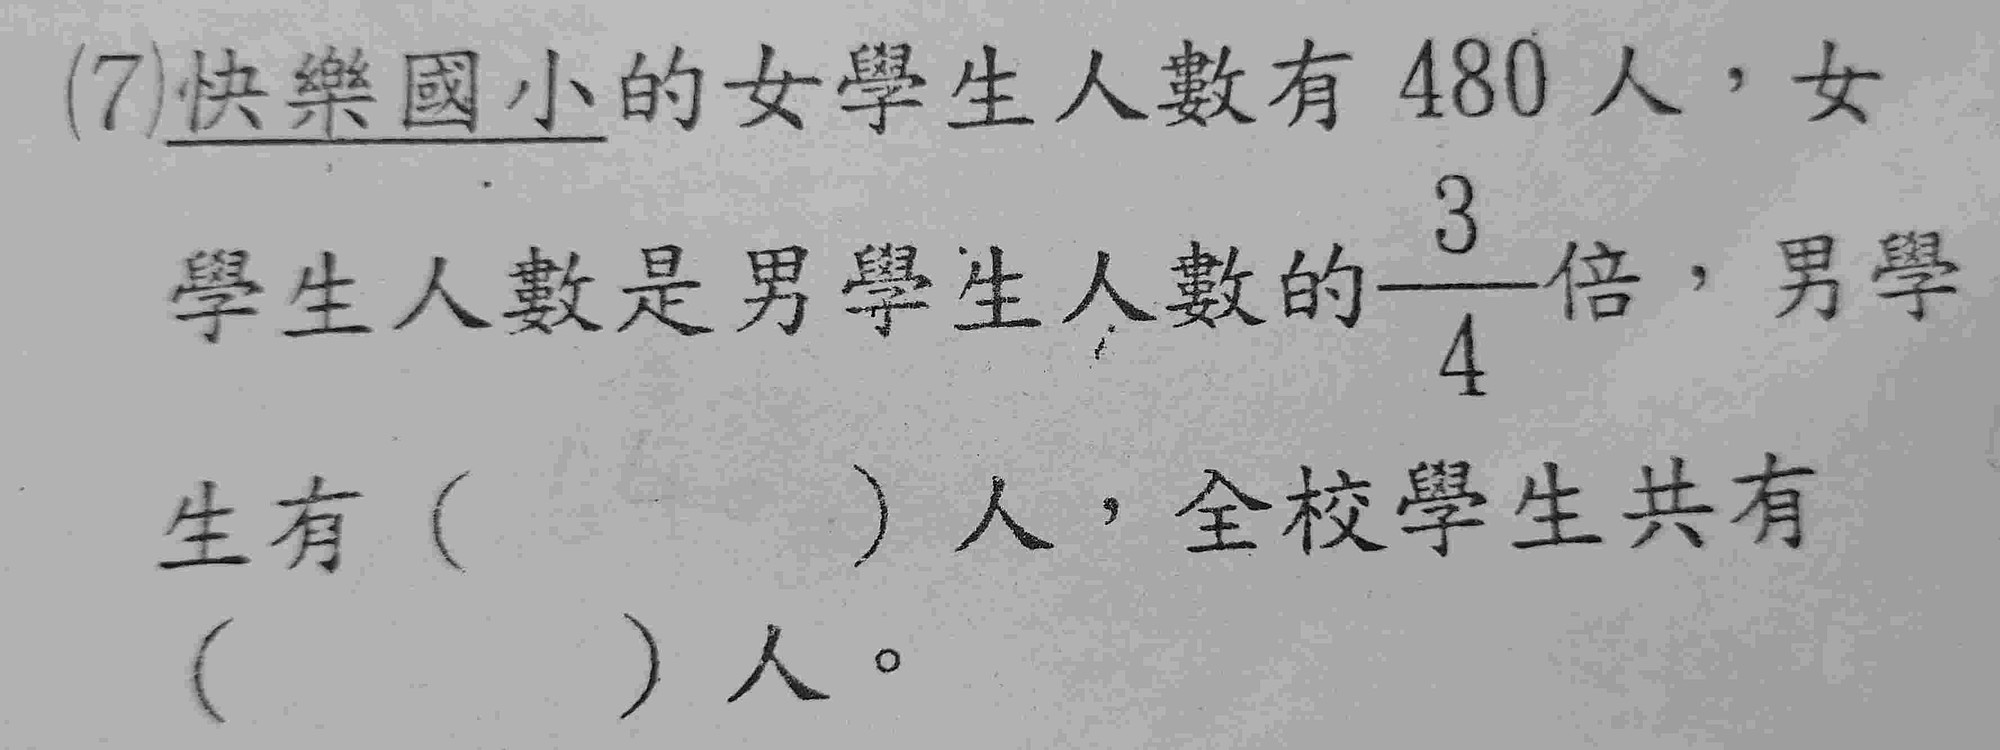 (7)快樂國小的女學生人數有 480 人，女
學生人數是男學生人數的3/4倍，男學
生有（　　　）人，全校學生共有
（　　　）人。